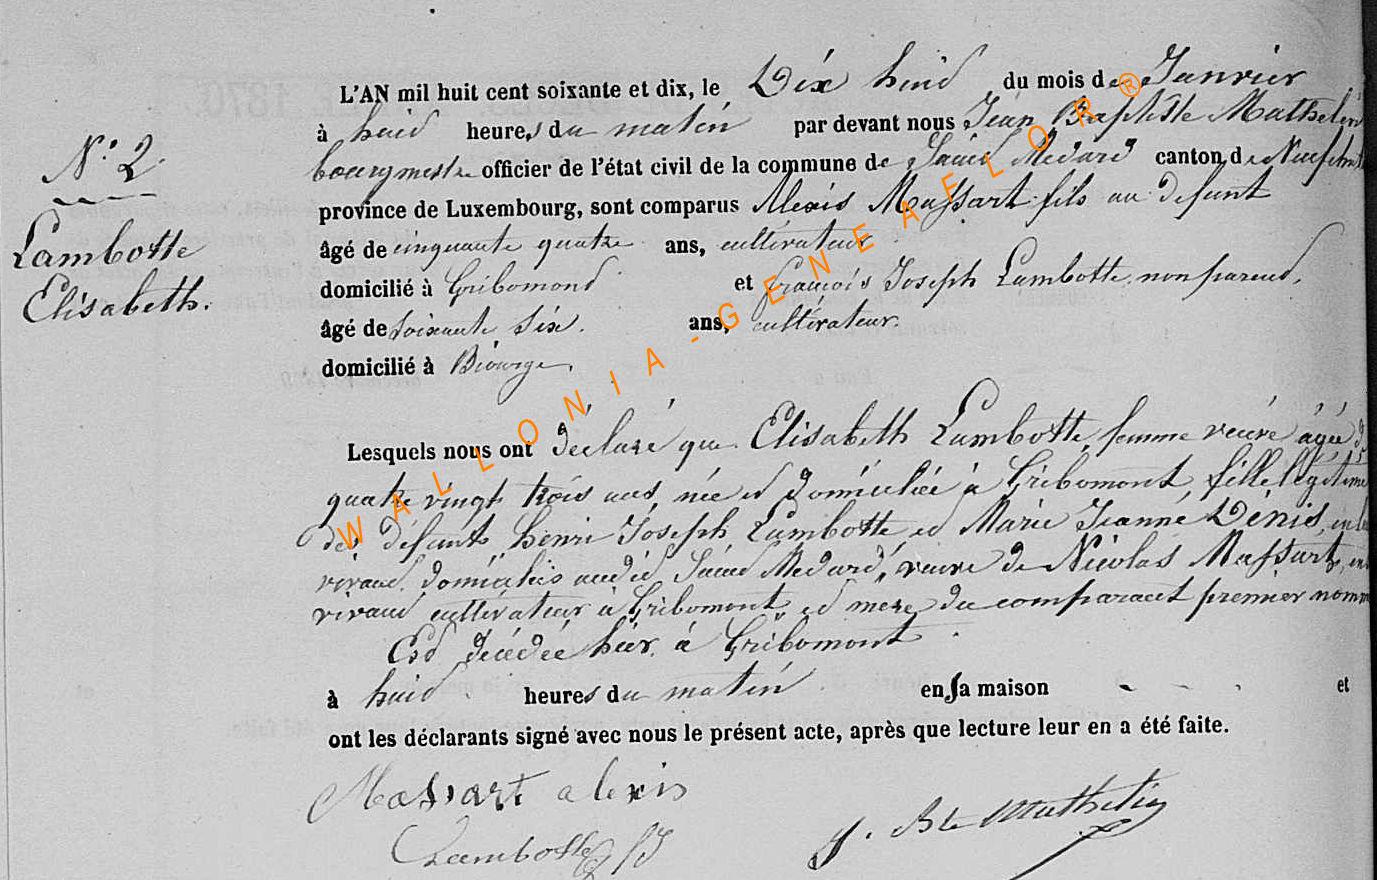 N.° 2.
Lambotte
Elisabeth.
L'AN mil huit cent soixante et dix, le Dix huid du mois de Janvier
à huid heures du matin par devant nous Jean Baptiste Mathelin
bourgmestre officier de l'état civil de la commune de Saind Medard canton de Neufchat
province de Luxembourg, sont comparus Alexis Massart fils au defunt
âgé de cinquante quatre ans, cultivateur
domicilié à Gribomond et francois Joseph Lambotte, non parend,
âgé de soixante six. ans, cultivateur.
domicilié à Biourge.
Lesquels nous ont déclaré que Elisabeth Lambotte, femme veuve agée d
quatre vingt trois ans, née et domiciliée à Gribomont fille légitime
des défunts henri Joseph Lambotte ed Marie Jeanne Denis, en leu
vivand domiciliés audid Saind Medard, veuve de Nicolas Massart, en
vivand cultivateur à Gribomont, ed mere du comparant premier nomm
Esd décédée hier. à Gribomont.
à huid heures du matin en sa maison - - - et
ont les déclarants signé avec nous le présent acte, après que lecture leur en a été faite.
Massart alexis
Lambotte fJ
J. Bte Mathelin
WALLONIA-GENEAFLOR®